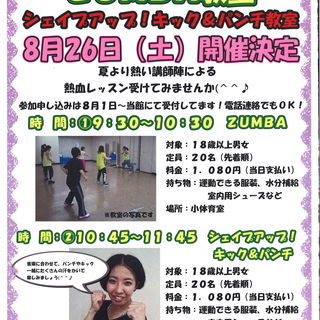 ZUMBA教室
シェイプアップ！キック＆パンチ教室
8月26日（土）開催決定
夏より熱い講師陣による
熱血レッスン受けてみませんか(＾＾♪
参加申し込みは８月１日～当館にて受付してます！電話連絡でもＯＫ！
時　間：①９：３０～１０：３０　ＺＵＭＢＡ
対象：１８歳以上男女
定員：２０名（先着順）
料金：１．０８０円（当日支払い）
持ち物：運動できる服装、水分補給
室内用シューズなど
場所：小体育室
※教室の写真です
時　間：②１０：４５～１１：４５　シェイプアップ！
キック＆パンチ
音楽に合わせて、パンチやキック
一緒にたくさんの汗をかいて
楽しみましょう(＾＾♪
対象：１８歳以上男女
定員：２０名（先着順）
料金：１．０８０円（当日支払い）